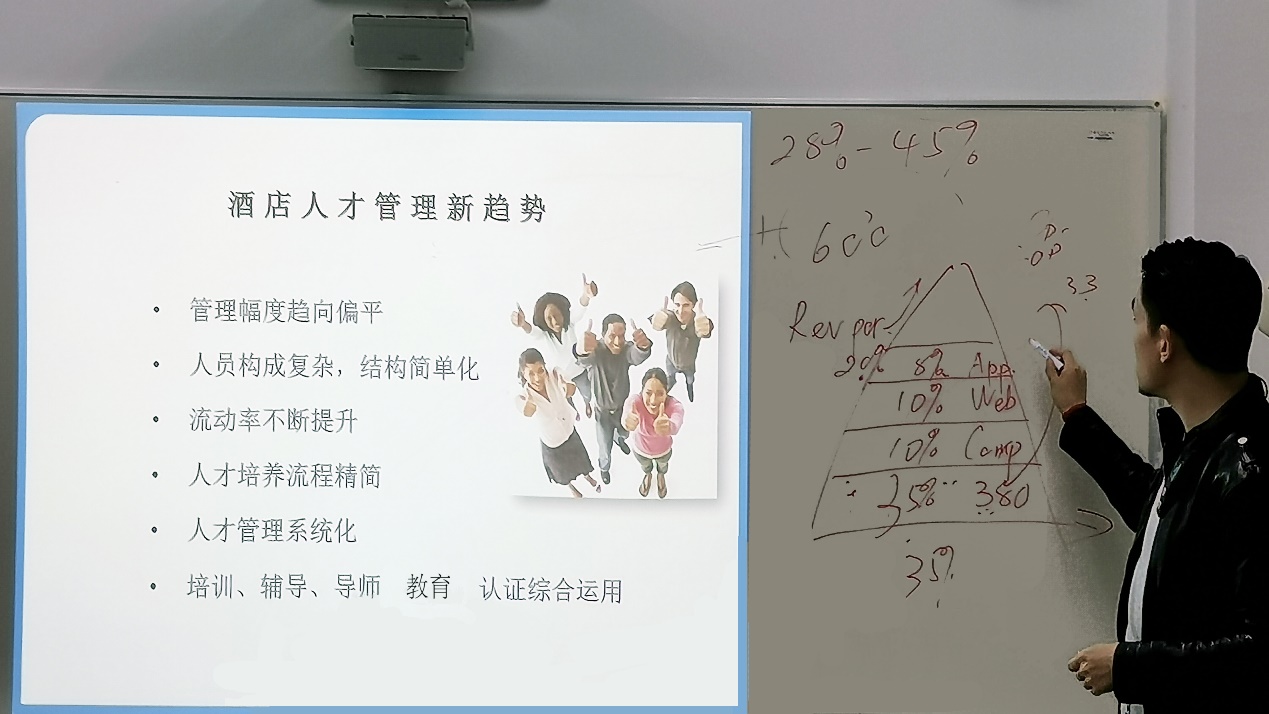 酒店人才管理新趋势
• 管理幅度趋向偏平
• 人员构成复杂，结构简单化
• 流动率不断提升
• 人才培养流程精简
• 人才管理系统化
• 培训、辅导、导师 教育 认证综合运用
28% - 45%
33
Rev par.
20% 8% App.
10% Web
10% Comp
35% 380
35%